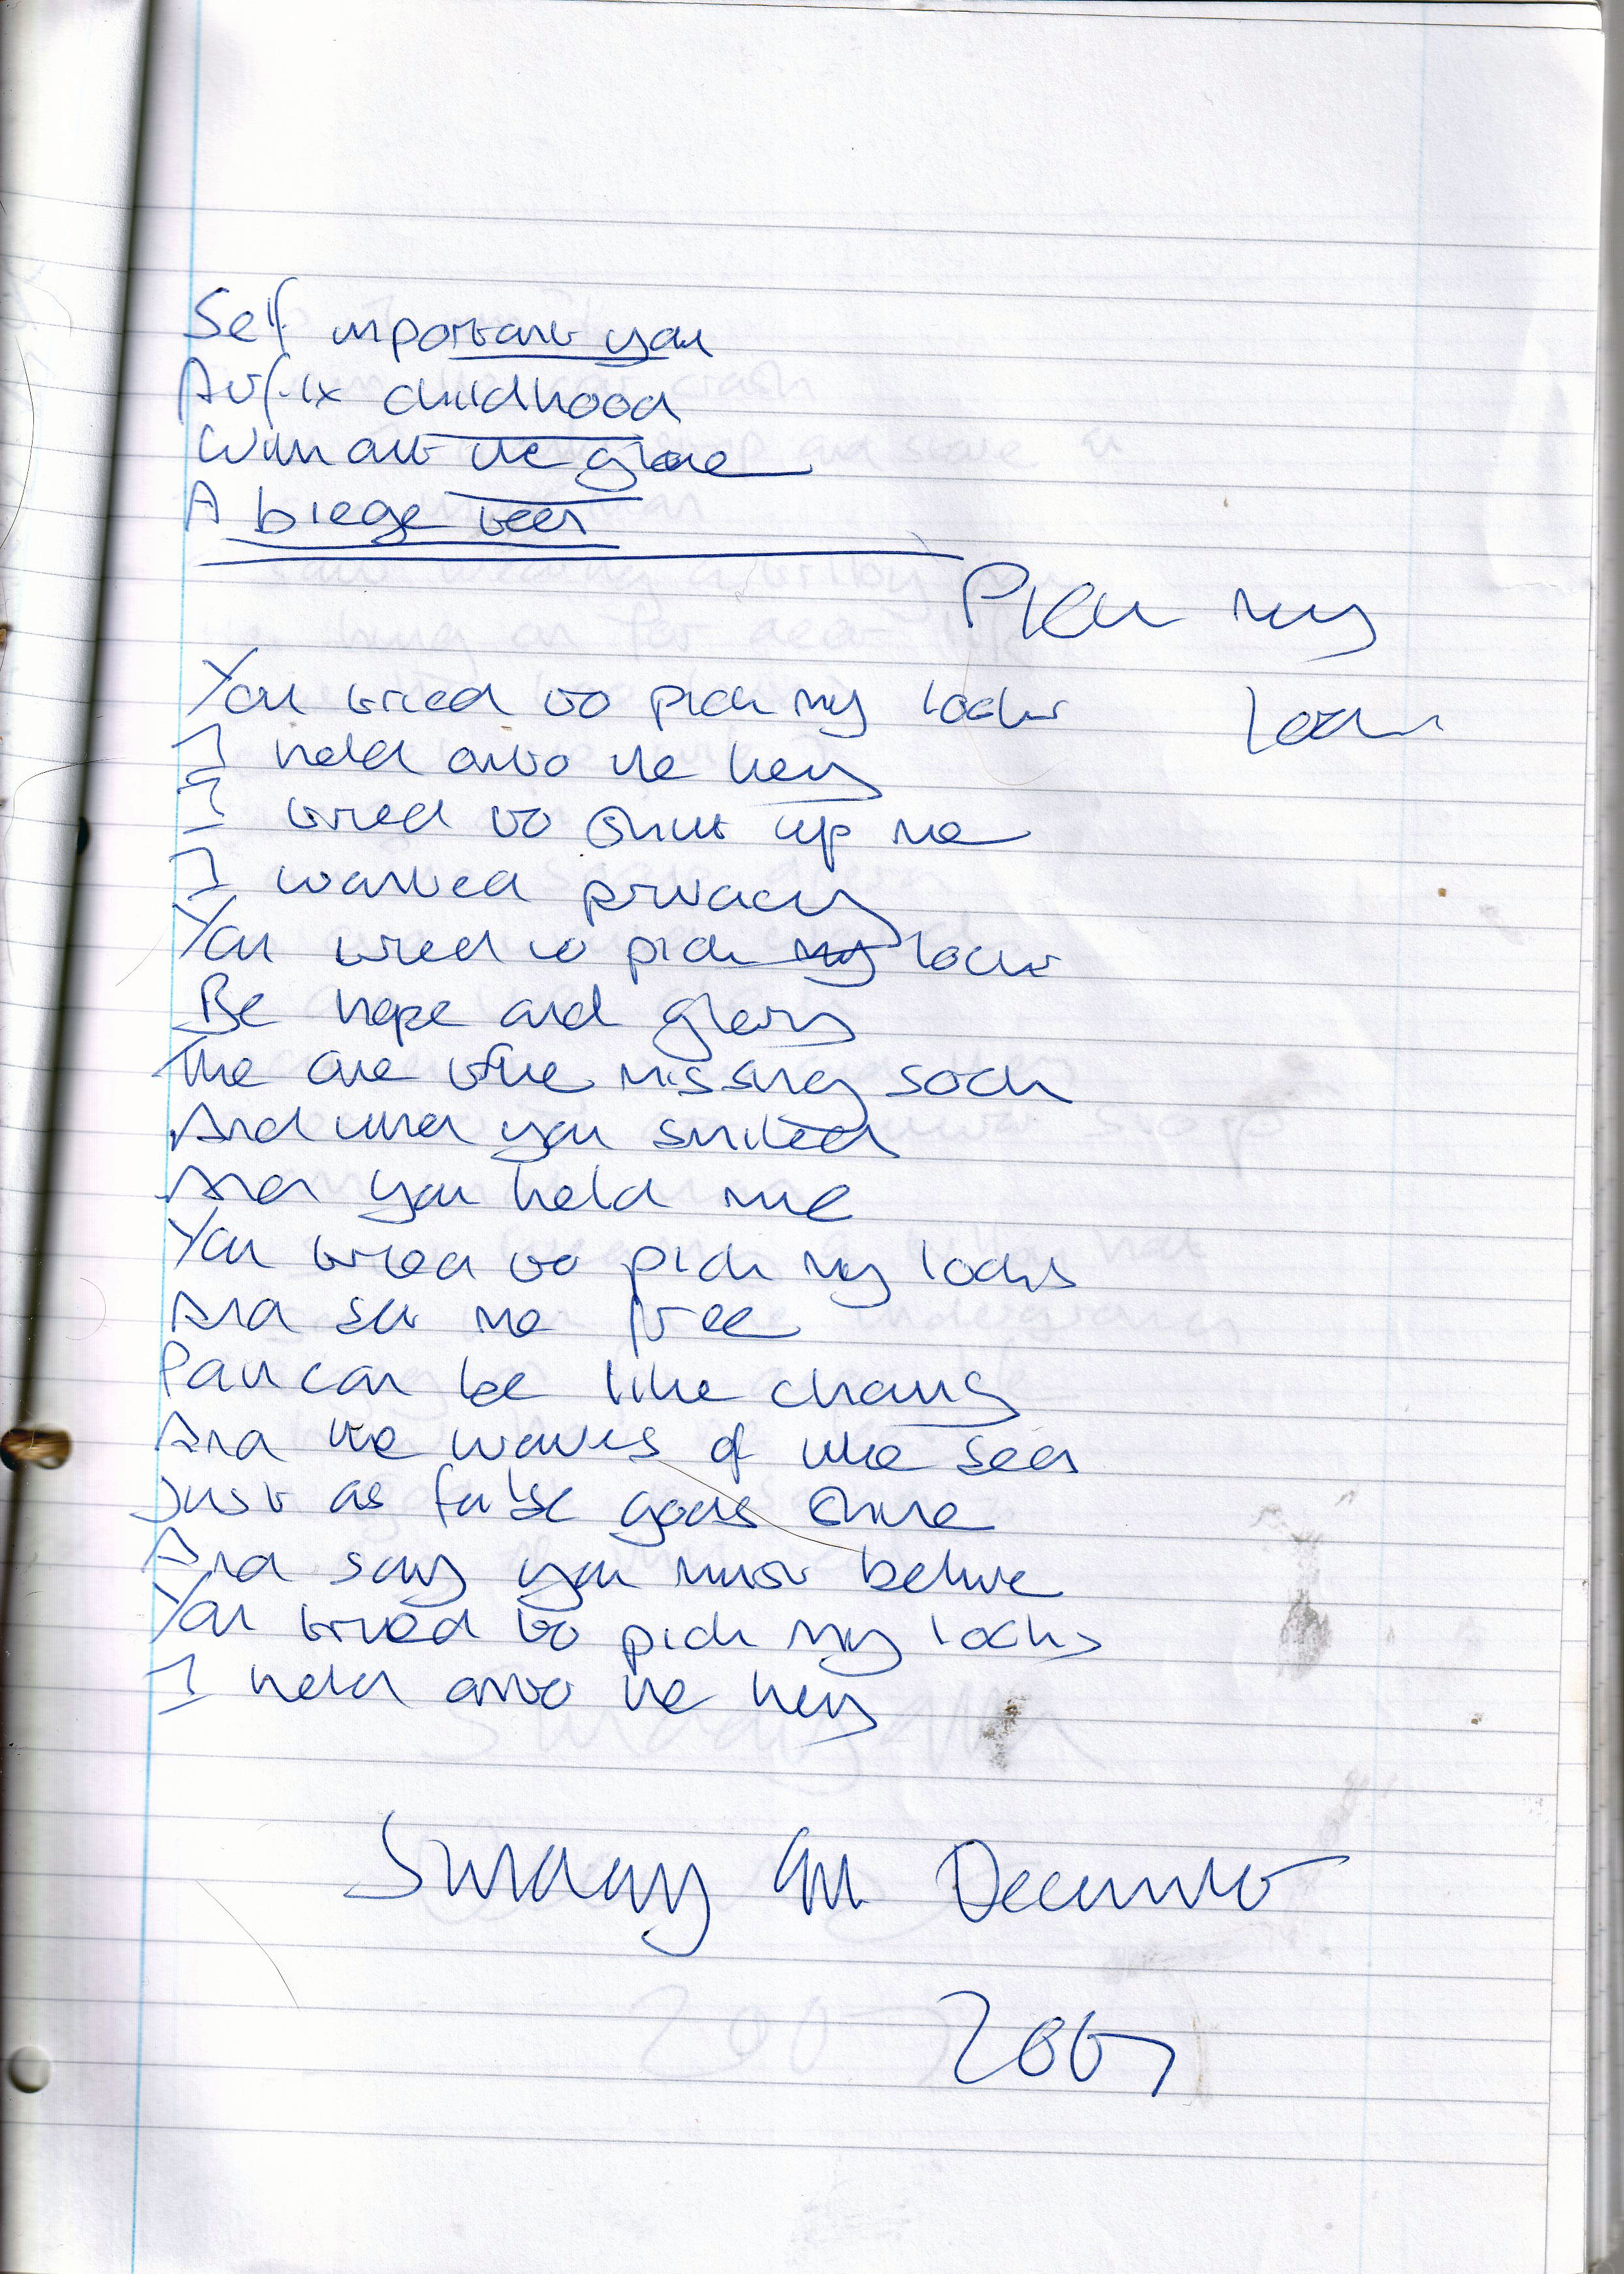 Self important you
Airfix childhood
Without the glue
A biege teen
Pick my
lock
You tried to pick my locks
I held onto the key
I tried to shut up me
I wanted privacy
You tried to pick my locks
Be hope and glory
The one the missing sock
And when you smiled
And you held me
You tried to pick my locks
And set me free
Pain can be like charity
And the waves of the sea
Just as false gods shine
And say you must belive
You tried to pick my locks
I held onto the key
Sunday 9th December
2007